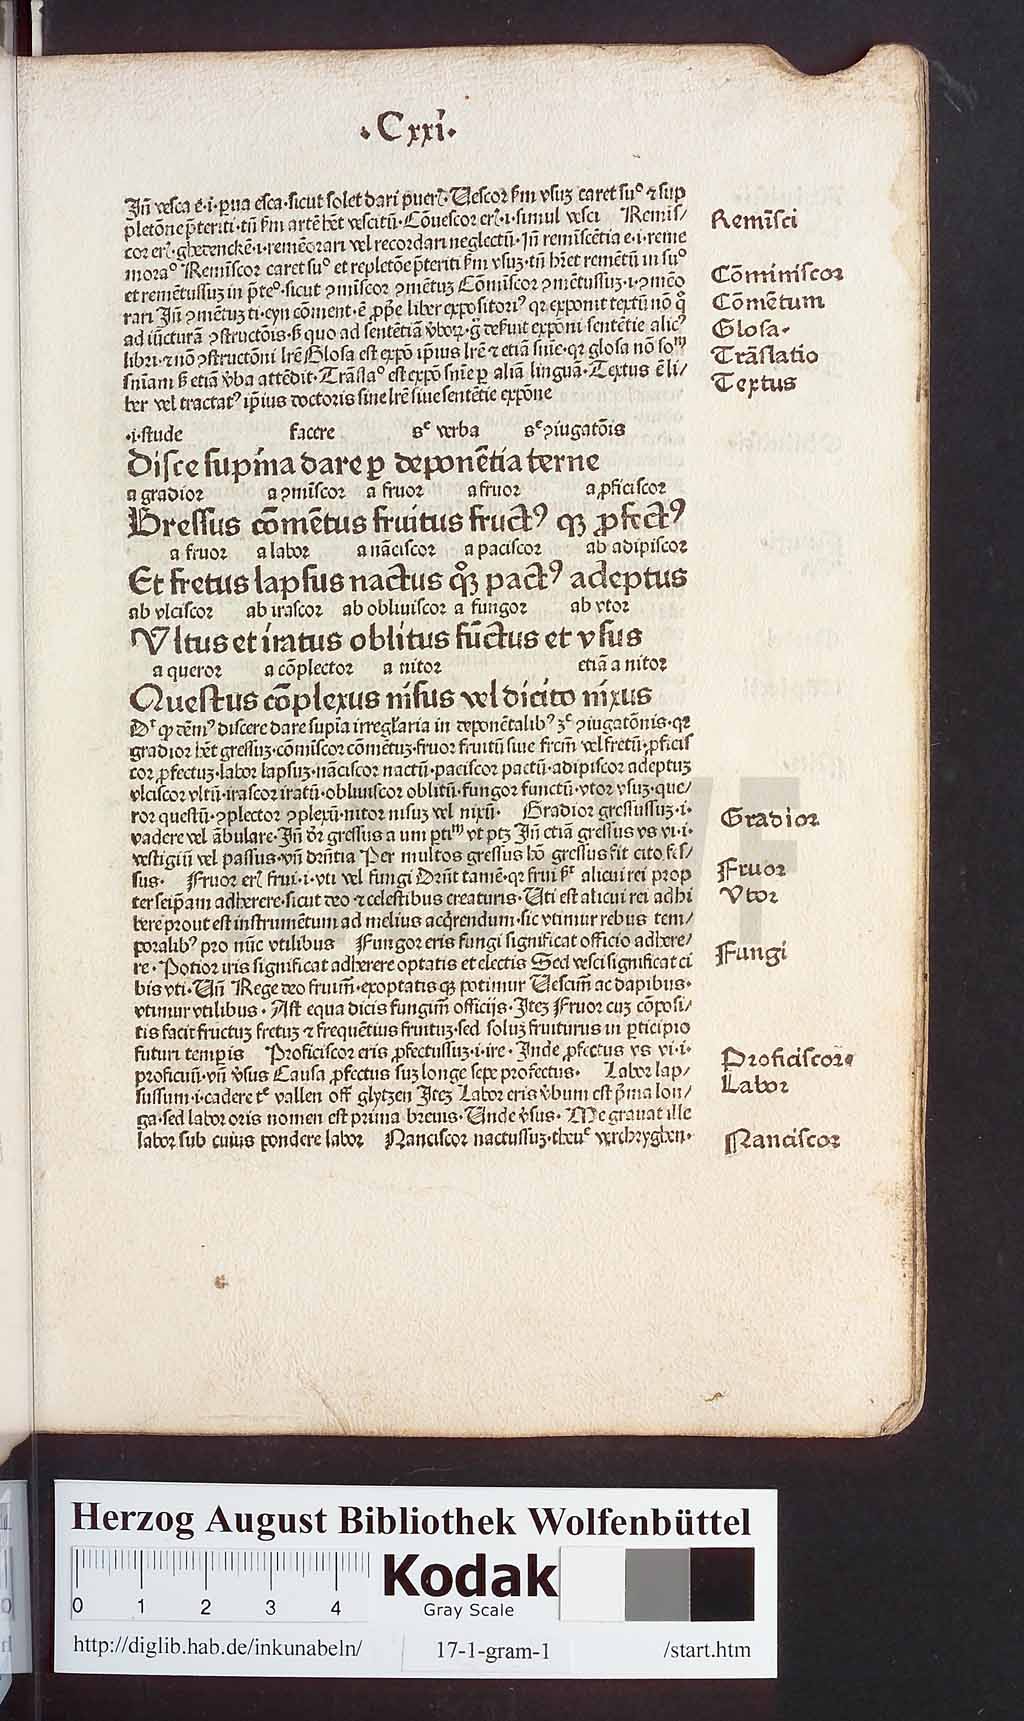 ·Cxxi·
Jñ vesca ē·i·pua esca·sicut solet dari puer Uescor ẜm vsuʒ caret suº ⁊ sup
pletōne p̄teriti·tñ ẜm artē hēt vescitū·Cōuescor er·i·simul vesci Remīs/
cor er·ghedenckē·i·remēorari vel recordari neglectū·Jñ remīscētia ē·i·reme
moraº Remīscor caret suº et repletōe p̄teriti ẜm vsuʒ·tñ hret remētū in suº
et remētussuʒ in p̄teº·sicut ꝯmīscor ꝯmētuʒ Cōmīscor ꝯmētussuʒ·i·ꝯmēo
rari Jñ ꝯmētuʒ ti·eyn cōment·ē ꝓpe liber expositoriꝰ qr exponit textū nō q̄
ad iūcturā ꝯstructōis·ẜ quo ad sententiā v̄boꝝ·
libri·⁊ nō ꝯstructōni lrē Glosa est expō ip̄ius lrē ⁊ etiā sn̄ie·qr glosa nō soᵐ
sn̄iam ẜ etiā v̄ba attēdit·Trāslaº est expō sn̄ie ꝑ aliā linguā·Textus ē li/
ber vel tractatꝰ ip̄ius doctoris siue lrē siue sentētie expōne
Remīsci
Cōminiscor
Cōmētum
Glosa·
Trāslatio
Textus
·i·stude facere sᶜ verba sᶜ ꝯiugatōis
Disce supīna dare ꝑ deponētia terne
a gradior a ꝯmīscor a fruor a fruor a ꝓficiscor
Gressus cōmētus fruitus fructꝰ qꝫ ꝓfectꝰ
a fruor a labor a nāciscor a paciscor ab adipiscor
Et fretus lapsus nactus qꝫ pactꝰ adeptus
ab vlciscor ab irascor ab obliuiscor a fungor ab vtor
Vltus et iratus oblitus fūctus et vsus
a queror a cōplector a nitor etiā a nitor
Questus cōplexus nīsus vel dicito nīxus
Dʳ ꝙ dēmꝰ discere dare supīa irreglaria in deponētalibꝰ ʒᶜ ꝯiugatōnis·qr
gradior hēt gressuʒ·cōmīscor cōmētuʒ·fruor fruitū siue frcm̄ vel fretū·ꝓficis
cor ꝓfectuʒ·labor lapsuʒ·nāciscor nactū·paciscor pactū·adipiscor adeptuʒ
vlciscor vltū·irascor iratū·obliuiscor oblitū·fungor functū·vtor vsuʒ·que/
ror questū·ꝯplector ꝯplexū·nitor nisuʒ vel nixū· Gradior gressussuʒ·i·
vadere vel ābulare·Jñ dr gressus a um ꝑtiᵐ vt ptʒ Jñ etiā gressus vs vi·i·
vestigiū vel passus·vn̄ drn̄tia Per multos gressus hō gressus fit cito fes/
sus· Fruor er frui·i·vti vel fungi Drn̄t tamē·qr frui ē alicui rei prop
ter seip̄am adherere·sicut deo ⁊ celestibus creaturis·Uti est alicui rei adhi
bere prout est instrumētum ad melius acq̄rendum·sic vtimur rebus tem/
poralibꝰ pro nūc vtilibus Fungor eris fungi significat officio adhere/
re·Potior iris significat adherere optatis et electis Sed vesci significat ci
bis vti·Un̄ Rege deo fruim̄·exoptatis qꝫ potimur Uescim̄ ac dapibus·
vtimur vtilibus·Ast equa dicis fungim̄ officijs·Jteʒ Fruor cuʒ cōposi/
tis facit fructuʒ fretuʒ ⁊ frequētius fruituʒ·sed soluʒ fruiturus in ꝑticipio
futuri tempris Proficiscor eris ꝓfectussuʒ·i·ire·Jnde ꝓfectus vs vi·i·
proficuū·vn̄ v̄sus Causa ꝓfectus suʒ longe sepe profectus· Labor lap/
sussum·i·cadere tᶜ vallen off glytzen Jteʒ Labor eris v̄bum est p̄ma lon/
ga·sed labor oris nomen est prima breuis·Unde v̄sus·Me grauat ille
labor sub cuius pondere labor Nanciscor nactussuʒ·theuᶜ vercrygben·
Gradior
Fruor
Vtor
Fungi
Proficiscor·
Labor
Nanciscor
Herzog August Bibliothek Wolfenbüttel
0 1 2 3 4
Kodak
Gray Scale
http://diglib.hab.de/inkunabeln/ 17-1-gram-1 /start.htm